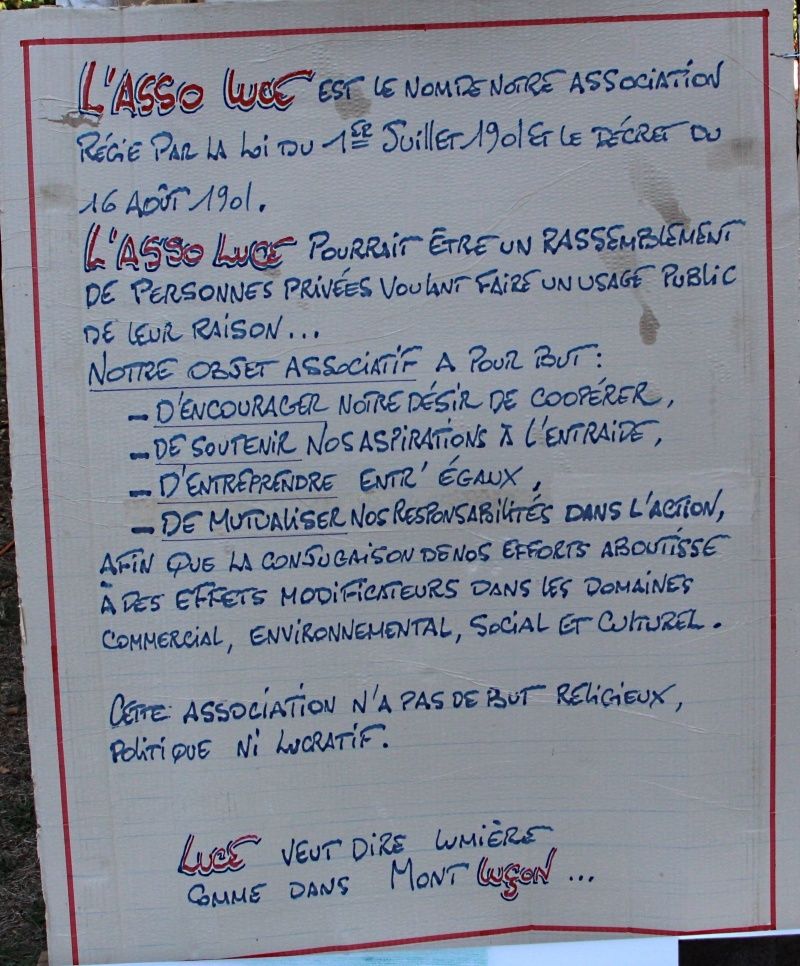 L'ASSO LUCE EST LE NOM DE NOTRE ASSOCIATION
RÉGIE PAR LA LOI DU 1ER JUILLET 1901 ET LE DÉCRET DU
16 AOÛT 1901.
L'ASSO LUCE POURRAIT ÊTRE UN RASSEMBLEMENT
DE PERSONNES PRIVÉES VOULANT FAIRE UN USAGE PUBLIC
DE LEUR RAISON...
NOTRE OBJET ASSOCIATIF A POUR BUT :
- D'ENCOURAGER NOTRE DÉSIR DE COOPÉRER,
- DE SOUTENIR NOS ASPIRATIONS À L'ENTRAIDE,
- D'ENTREPRENDRE ENTR' ÉGAUX,
- DE MUTUALISER NOS RESPONSABILITÉS DANS L'ACTION,
AFIN QUE LA CONJUGAISON DE NOS EFFORTS ABOUTISSE
À DES EFFETS MODIFICATEURS DANS LES DOMAINES
COMMERCIAL, ENVIRONNEMENTAL, SOCIAL ET CULTUREL.
CETTE ASSOCIATION N'A PAS DE BUT RELIGIEUX,
POLITIQUE NI LUCRATIF.
LUCE VEUT DIRE LUMIÈRE
COMME DANS MONT LUÇON ...